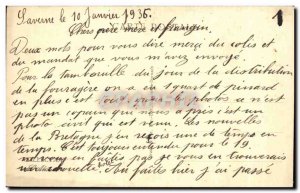 Saverne le 10 Janvier 1936.
1
Chers père mère et frangin.
Deux mots pour vous dire merci du colis et
du mandat que vous m'avez envoyé.
Pour la tambouille du jour de la distribution
de la fouragère on a eu quart de pinard
en plus c'est tout quant les photos n'est
pas un copain qui nous a pris c'est un
photo civil qui est venu. des nouvelles
de la Bretagne j'en reçois une de temps en
temps. C'est toujours entendu pour le 19.
en faites pas je vous en trouverais
Au faites hier j'ai passé